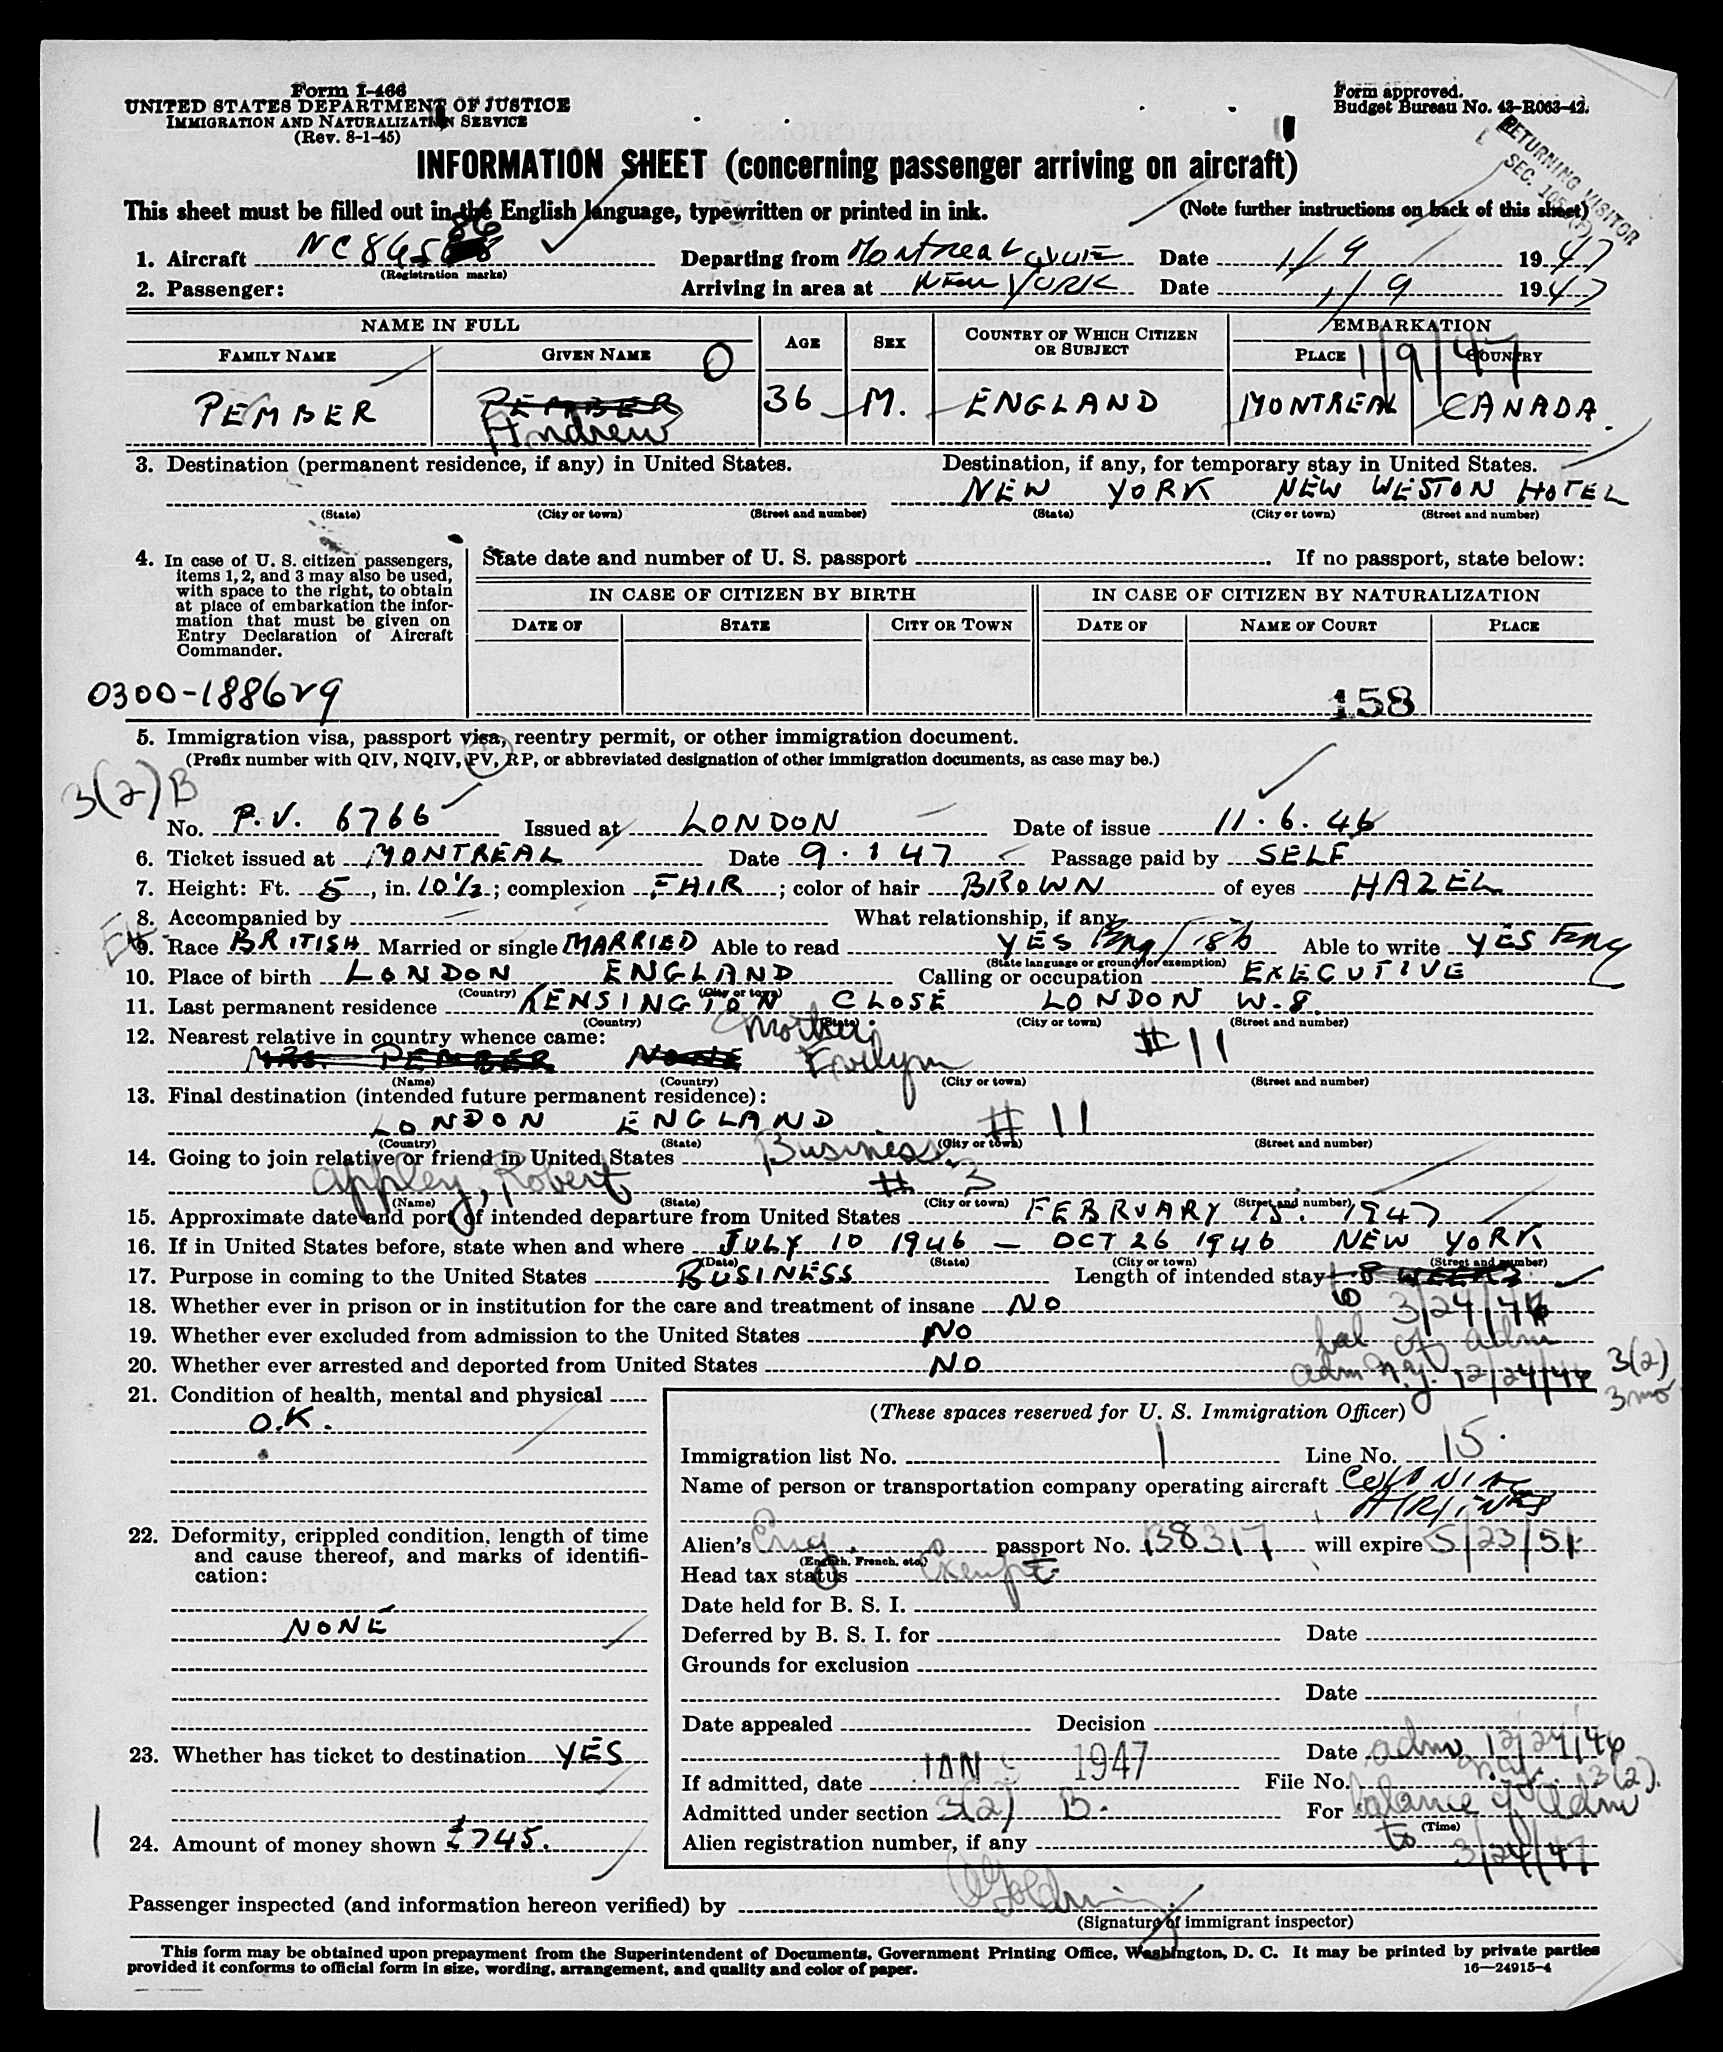 Form I-466
UNITED STATES DEPARTMENT OF JUSTICE
IMMIGRATION AND NATURALIZATION SERVICE
(Rev. 8-1-45)
Form approved.
Budget Bureau No. 43-R063-42.
RETURNING VISITOR
SEC.
INFORMATION SHEET (concerning passenger arriving on aircraft)
This sheet must be filled out in the English language, typewritten or printed in ink. (Note further instructions on back of this sheet)
1. Aircraft Departing from Montreal Date 1/9 1947
(Registration marks)
2. Passenger: Arriving in area at New YORK Date 1/9 1947
NAME IN FULL AGE SEX COUNTRY OF WHICH CITIZEN OR SUBJECT EMBARKATION
FAMILY NAME GIVEN NAME O PLACE COUNTRY 1/9/47
PEMBER PEMBER Andrew 36 M. ENGLAND MONTREAL CANADA.
3. Destination (permanent residence, if any) in United States. Destination, if any, for temporary stay in United States.
NEW YORK NEW WESTON HOTEL
(State) (City or town) (Street and number) (State) (City or town) (Street and number)
4. In case of U. S. citizen passengers, items 1, 2, and 3 may also be used, with space to the right, to obtain at place of embarkation the information that must be given on Entry Declaration of Aircraft Commander.
State date and number of U. S. passport If no passport, state below:
IN CASE OF CITIZEN BY BIRTH IN CASE OF CITIZEN BY NATURALIZATION
DATE OF STATE CITY OR TOWN DATE OF NAME OF COURT PLACE
0300-188629 158
5. Immigration visa, passport visa, reentry permit, or other immigration document.
(Prefix number with QIV, NQIV, PV, RP, or abbreviated designation of other immigration documents, as case may be.)
3(2)B
No. P.V. 6766 Issued at LONDON Date of issue 11.6.46
6. Ticket issued at MONTREAL Date 9.1 47 Passage paid by SELF
7. Height: Ft. 5, in. 10½; complexion FAIR; color of hair BROWN of eyes HAZEL
8. Accompanied by — What relationship, if any
9. Race BRITISH Married or single MARRIED Able to read YES Eng Able to write YES Eng
(State language or ground for exemption)
10. Place of birth LONDON ENGLAND Calling or occupation EXECUTIVE
(Country) (City or town)
11. Last permanent residence KENSINGTON CLOSE LONDON W.8.
(Country) (State) (City or town) (Street and number)
12. Nearest relative in country whence came: Mother;
MRS. PEMBER NONE Evelyn #11
(Name) (Country) (City or town) (Street and number)
13. Final destination (intended future permanent residence):
LONDON ENGLAND #11
(Country) (State) (City or town) (Street and number)
14. Going to join relative or friend in United States Business
Appley, Robert # 3
(Name) (State) (City or town) (Street and number)
15. Approximate date and port of intended departure from United States FEBRUARY 15. 1947
16. If in United States before, state when and where JULY 10 1946 — OCT 26 1946 NEW YORK
(Date) (State) (City or town) (Street and number)
17. Purpose in coming to the United States BUSINESS Length of intended stay 8 WEEKS
18. Whether ever in prison or in institution for the care and treatment of insane NO to 3/24/47
19. Whether ever excluded from admission to the United States NO bal of adm
20. Whether ever arrested and deported from United States NO adm N.Y. 12/24/46 3(2) 3 mo
21. Condition of health, mental and physical
O.K.
22. Deformity, crippled condition, length of time and cause thereof, and marks of identification:
NONE
23. Whether has ticket to destination YES
24. Amount of money shown £745.
(These spaces reserved for U. S. Immigration Officer)
Immigration list No. 1 Line No. 15.
Name of person or transportation company operating aircraft COLONIAL
AIRLINES
Alien's Eng. passport No. 138317 will expire 5/23/51
(English, French, etc.)
Head tax status Exempt
Date held for B. S. I.
Deferred by B. S. I. for Date
Grounds for exclusion
Date
Date appealed Decision
Date adm 12/24/46
If admitted, date JAN 1947 File No. N.Y. 3(2).
Admitted under section 3(2) B. For balance of Adm
(Time)
Alien registration number, if any to 3/24/47
Passenger inspected (and information hereon verified) by
(Signature of immigrant inspector)
This form may be obtained upon prepayment from the Superintendent of Documents, Government Printing Office, Washington, D. C. It may be printed by private parties
provided it conforms to official form in size, wording, arrangement, and quality and color of paper. 16—24915-4